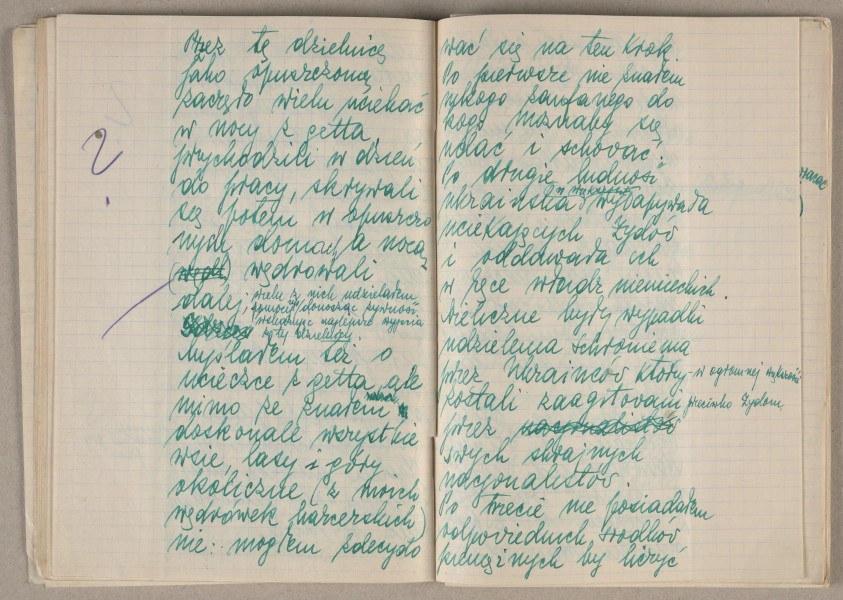 Przez tę dzielnicę
jako opuszczoną
zaczęło wielu uciekać
w nocy z getta,
wychodzili w dzień
do pracy, skrywali
się potem w opuszczo
nych domach a nocą
wędrowali
dalej, wielu z nich udzielałem
pomocy donosząc żywność
wskazując najlepsze wyjścia
z tej dzielnicy
Myślałem też o
ucieczce z getta, ale
mimo że znałem
doskonale wszystkie
wsie, lasy i góry
okoliczne (z moich
wędrówek harcerskich)
nie mogłem zdecydo
wać się na ten krok
Po pierwsze nie znałem
nikogo zaufanego do
kogo możnaby się
udać i schować.
Po drugie ludność
ukraińska w większości wyłapywała
uciekających Żydów
i oddawała ich
w ręce władz niemieckich.
Nieliczne były wypadki
udzielenia schronienia
przez Ukraińców którzy w ogromnej większości
zostali zaagitowani przeciwko Żydom
przez nacjonalistów
swych skrajnych
nacjonalistów.
Po trzecie nie posiadałem
odpowiednich środków
pieniężnych by liczyć